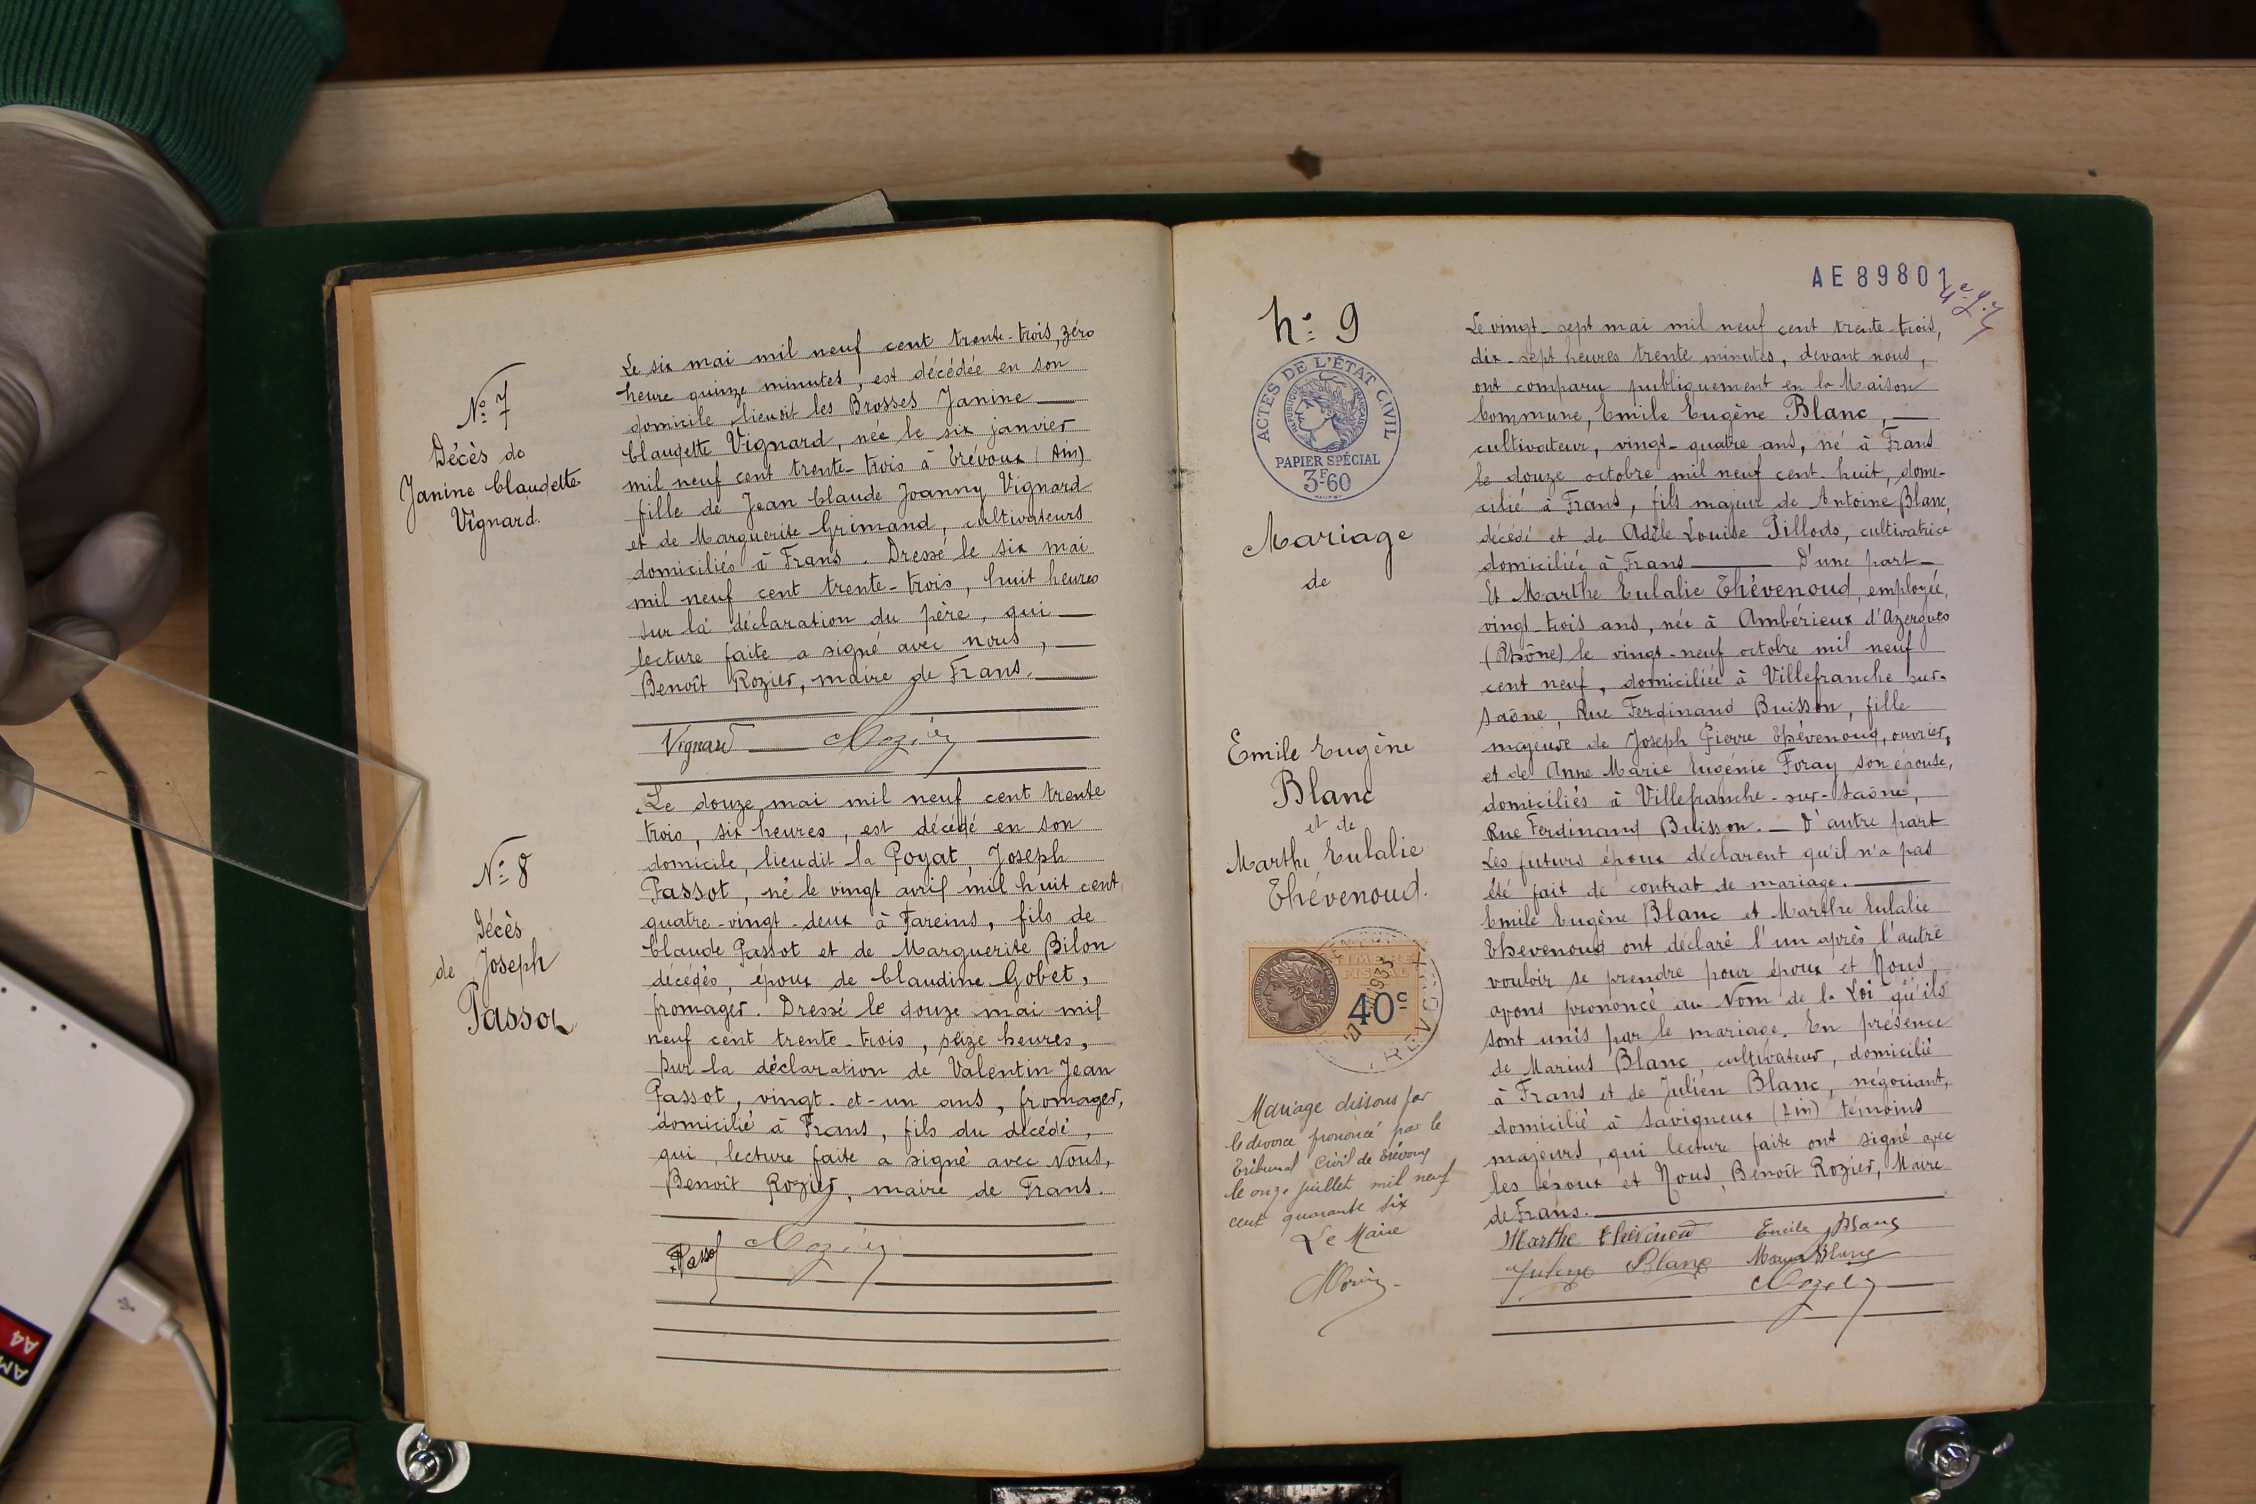 N° 7
Décès de
Janine Claudette
Vignard.
Le six mai mil neuf cent trente-trois, zéro
heure quinze minutes, est décédée en son
domicile, lieudit les Brosses Janine
Claudette Vignard, née le six janvier
mil neuf cent trente-trois à Trévoux (Ain)
fille de Jean Claude Joanny Vignard
et de Marguerite Grimand, cultivateurs
domiciliés à Frans. Dressé le six mai
mil neuf cent trente-trois, huit heures
sur la déclaration du père, qui
lecture faite a signé avec nous,
Benoît Rozier, maire de Frans.
Vignard Rozier
N° 8
Décès
de Joseph
Passot
Le douze mai mil neuf cent trente
trois, six heures, est décédé en son
domicile, lieudit la Poyat, Joseph
Passot, né le vingt avril mil huit cent
quatre-vingt-deux à Fareins, fils de
Claude Passot et de Marguerite Bilon
décédés, époux de Claudine Gobet,
fromager. Dressé le douze mai mil
neuf cent trente-trois, seize heures,
sur la déclaration de Valentin Jean
Passot, vingt-et-un ans, fromager,
domicilié à Frans, fils du décédé,
qui, lecture faite a signé avec Nous,
Benoît Rozier, maire de Frans.
Passot Rozier
AE 89801
N° 9
ACTES DE L'ÉTAT CIVIL
RÉPUBLIQUE FRANÇAISE
PAPIER SPÉCIAL
3F60
Mariage
de
Emile Eugène
Blanc
et de
Marthe Eulalie
Thévenoud.
TIMBRE
FISCAL
40c
1933
Mariage dissous par
le divorce prononcé par le
Tribunal Civil de Trévoux
le onze juillet mil neuf
cent quarante six
Le Maire
Le vingt-sept mai mil neuf cent trente-trois,
dix-sept heures trente minutes, devant nous,
ont comparu publiquement en la Maison
Commune, Emile Eugène Blanc,
cultivateur, vingt-quatre ans, né à Frans
le douze octobre mil neuf cent huit, domi-
cilié à Frans, fils majeur de Antoine Blanc,
décédé et de Adèle Louise Pillods, cultivatrice
domiciliée à Frans D'une part
Et Marthe Eulalie Thévenoud, employée,
vingt-trois ans, née à Ambérieux d'Azergues
(Rhône) le vingt-neuf octobre mil neuf
cent neuf, domiciliée à Villefranche sur-
Saône, Rue Ferdinand Buisson, fille
majeure de Joseph Pierre Thévenoud, ouvrier,
et de Anne Marie Eugénie Foray son épouse,
domiciliés à Villefranche-sur-Saône,
Rue Ferdinand Buisson. — D'autre part
Les futurs époux déclarent qu'il n'a pas
été fait de contrat de mariage.
Emile Eugène Blanc et Marthe Eulalie
Thevenoud ont déclaré l'un après l'autre
vouloir se prendre pour époux et Nous
avons prononcé au Nom de la Loi qu'ils
sont unis par le mariage. En présence
de Marius Blanc, cultivateur, domicilié
à Frans et de Julien Blanc, négociant,
domicilié à Savigneux (Ain) témoins
majeurs, qui lecture faite ont signé avec
les époux et Nous, Benoît Rozier, Maire
de Frans.
Marthe Thévenoud Emile Blanc
Julien Blanc Marius Blanc
Rozier
AM
A4